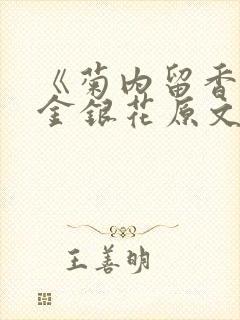 《菊内留香
金银花原文
王善明